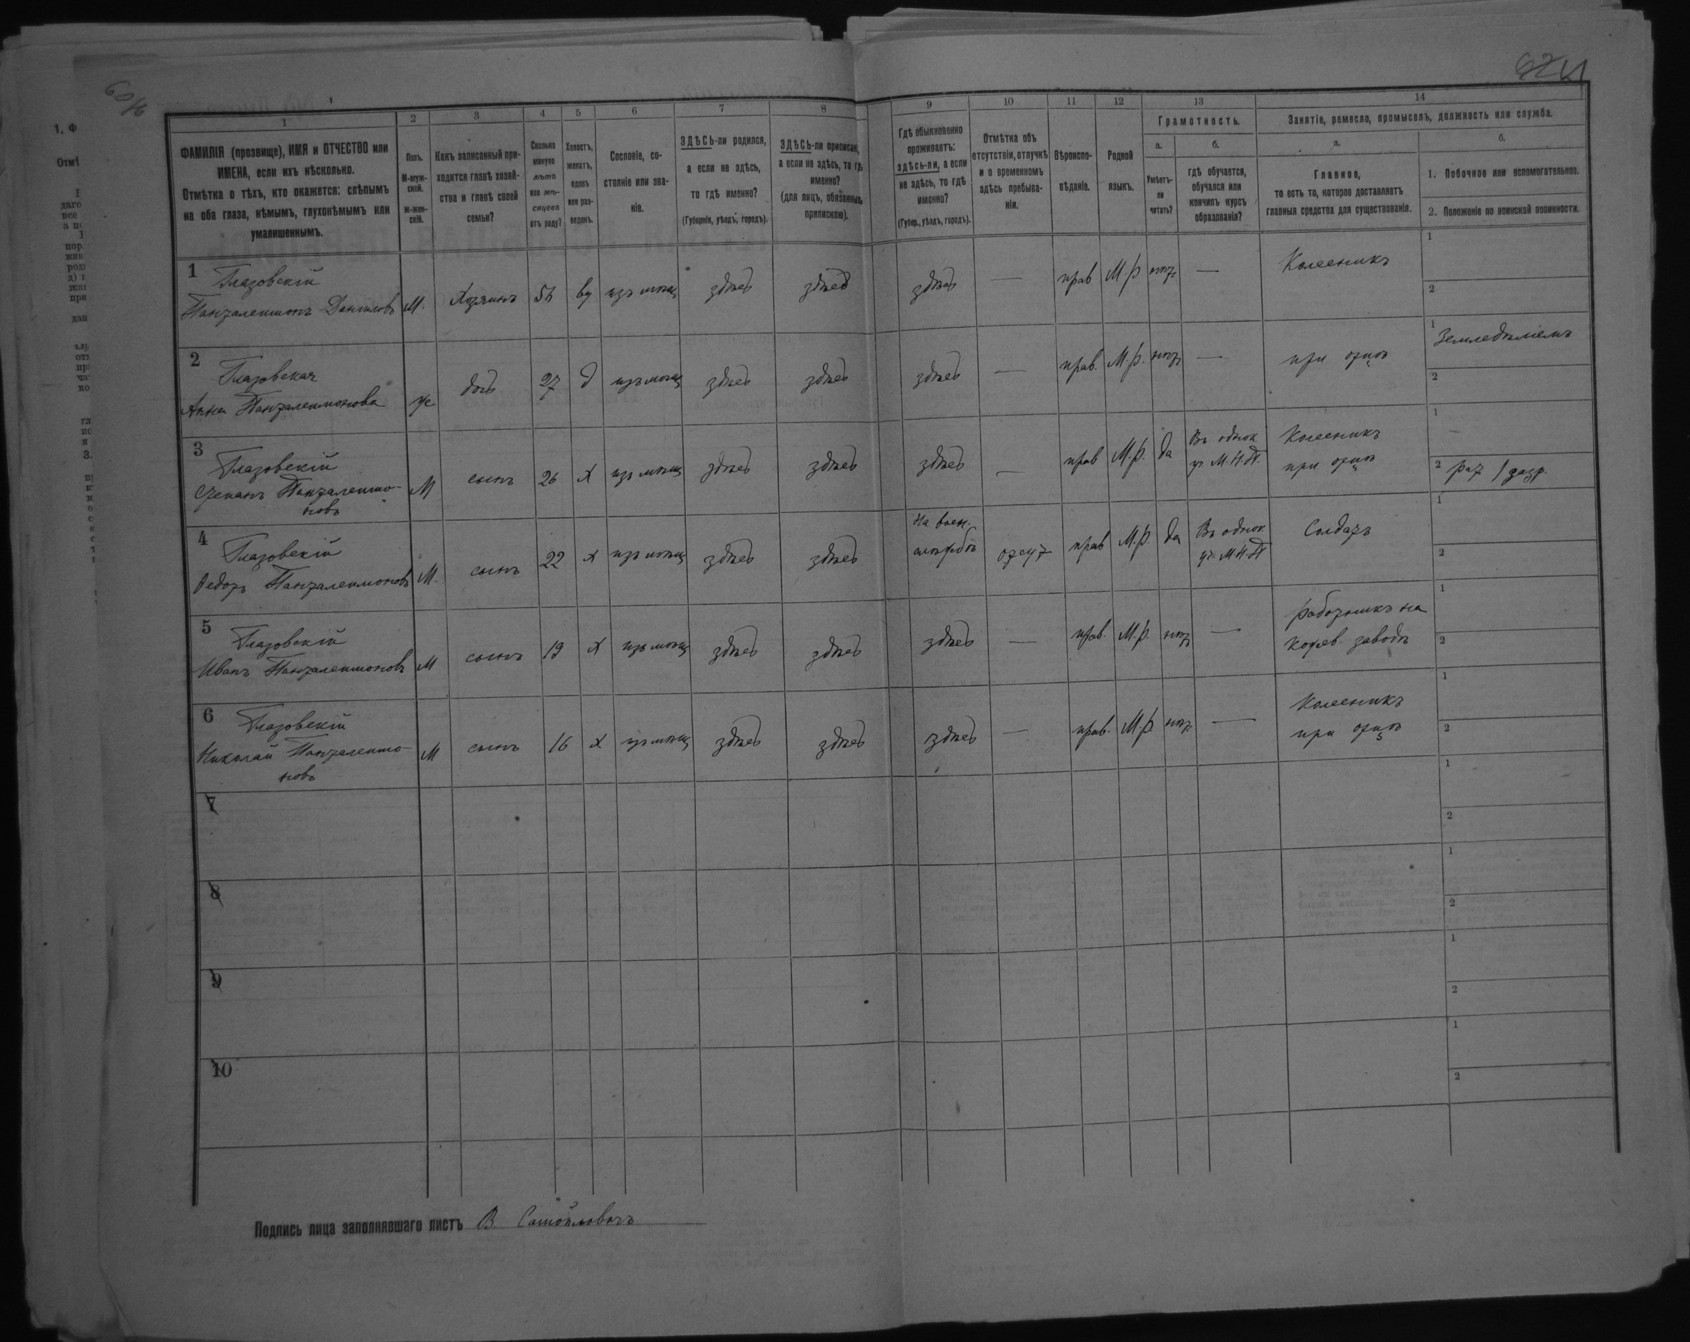 1
2
3
4
5
6
7
8
9
10
11
12
13
14
ФАМИЛІЯ (прозвище), ИМЯ и ОТЧЕСТВО или
ИМЕНА, если ихъ нѣсколько.
Отмѣтка о тѣхъ, кто окажется: слѣпымъ
на оба глаза, нѣмымъ, глухонѣмымъ или
умалишеннымъ.
Полъ.
М-муж-
ской.
Ж-жен-
скій.
Какъ записанный при-
ходится главѣ хозяй-
ства и главѣ своей
семьи?
Сколько
минуло
лѣтъ
или мѣ-
сяцевъ
отъ роду?
Холостъ,
женатъ,
вдовъ
или раз-
веденъ.
Сословіе, со-
стояніе или зва-
ніе.
ЗДѢСЬ-ли родился,
а если не здѣсь,
то гдѣ именно?
(Губернія, уѣздъ, городъ).
ЗДѢСЬ-ли приписанъ,
а если не здѣсь, то гдѣ
именно?
(для лицъ, обязанныхъ
припискою).
Гдѣ обыкновенно
проживаетъ:
здѣсь-ли, а если
не здѣсь, то гдѣ
именно?
(Губер., уѣздъ, городъ).
Отмѣтка объ
отсутствіи, отлучкѣ
и о временномъ
здѣсь пребыва-
ніи.
Вѣроиспо-
вѣданіе.
Родной
языкъ.
Грамотность.
а.
Умѣетъ-
ли
читать?
б.
гдѣ обучается,
обучался или
кончилъ курсъ
образованія?
Занятіе, ремесло, промыселъ, должность или служба.
а.
Главное,
то есть то, которое доставляетъ
главныя средства для существованія.
б.
1. Побочное или вспомогательное.
2. Положеніе по воинской повинности.
1
Глазовскій
Панталеимонъ Даниловъ
М.
Хозяинъ
56
вд
изъ мѣщ
здѣсь
здѣсь
здѣсь
—
прав
М.р
нѣтъ
—
Колесникъ
1
2
2
Глазовская
Анна Панталеимонова
ж
дочь
27
д
изъ мѣщ
здѣсь
здѣсь
здѣсь
—
прав.
М.р.
нѣтъ
—
при отцѣ
1 Земледѣліемъ
2
3
Глазовскій
Степанъ Панталеимо-
новъ
М
сынъ
26
х
изъ мѣщ
здѣсь
здѣсь
здѣсь
—
прав
М.р.
да
Въ однок
уч. М.Н.П.
Колесникъ
при отцѣ
1
2
4
Глазовскій
Ѳедоръ Панталеимоновъ
М.
сынъ
22
х
изъ мѣщ
здѣсь
здѣсь
На воен.
службѣ
отсут
прав
М.р.
да
Въ однок
уч. М.Н.П.
Солдатъ
1
2
5
Глазовскій
Иванъ Панталеимоновъ
М
сынъ
19
х
изъ мѣщ
здѣсь
здѣсь
здѣсь
—
прав.
М.р.
нѣтъ
—
Работникъ на
кожев. заводѣ
1
2
6
Глазовскій
Николай Панталеимо-
новъ
М
сынъ
16
х
изъ мѣщ
здѣсь
здѣсь
здѣсь
—
прав.
М.р
нѣтъ
—
Колесникъ
при отцѣ
1
2
7
1
2
8
1
2
9
1
2
10
1
2
Подпись лица заполнявшаго листъ В.